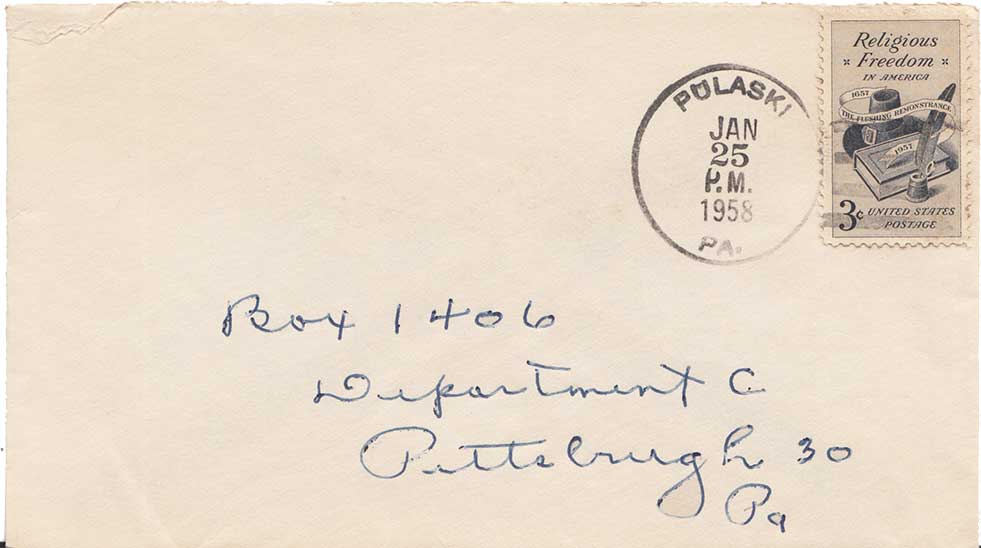 PULASKI
JAN
25
P.M.
1958
PA.
Religious
Freedom
IN AMERICA
1657
THE FLUSHING REMONSTRANCE
1957
3¢ UNITED STATES
POSTAGE
Box 1406
Department C
Pittsburgh 30
Pa